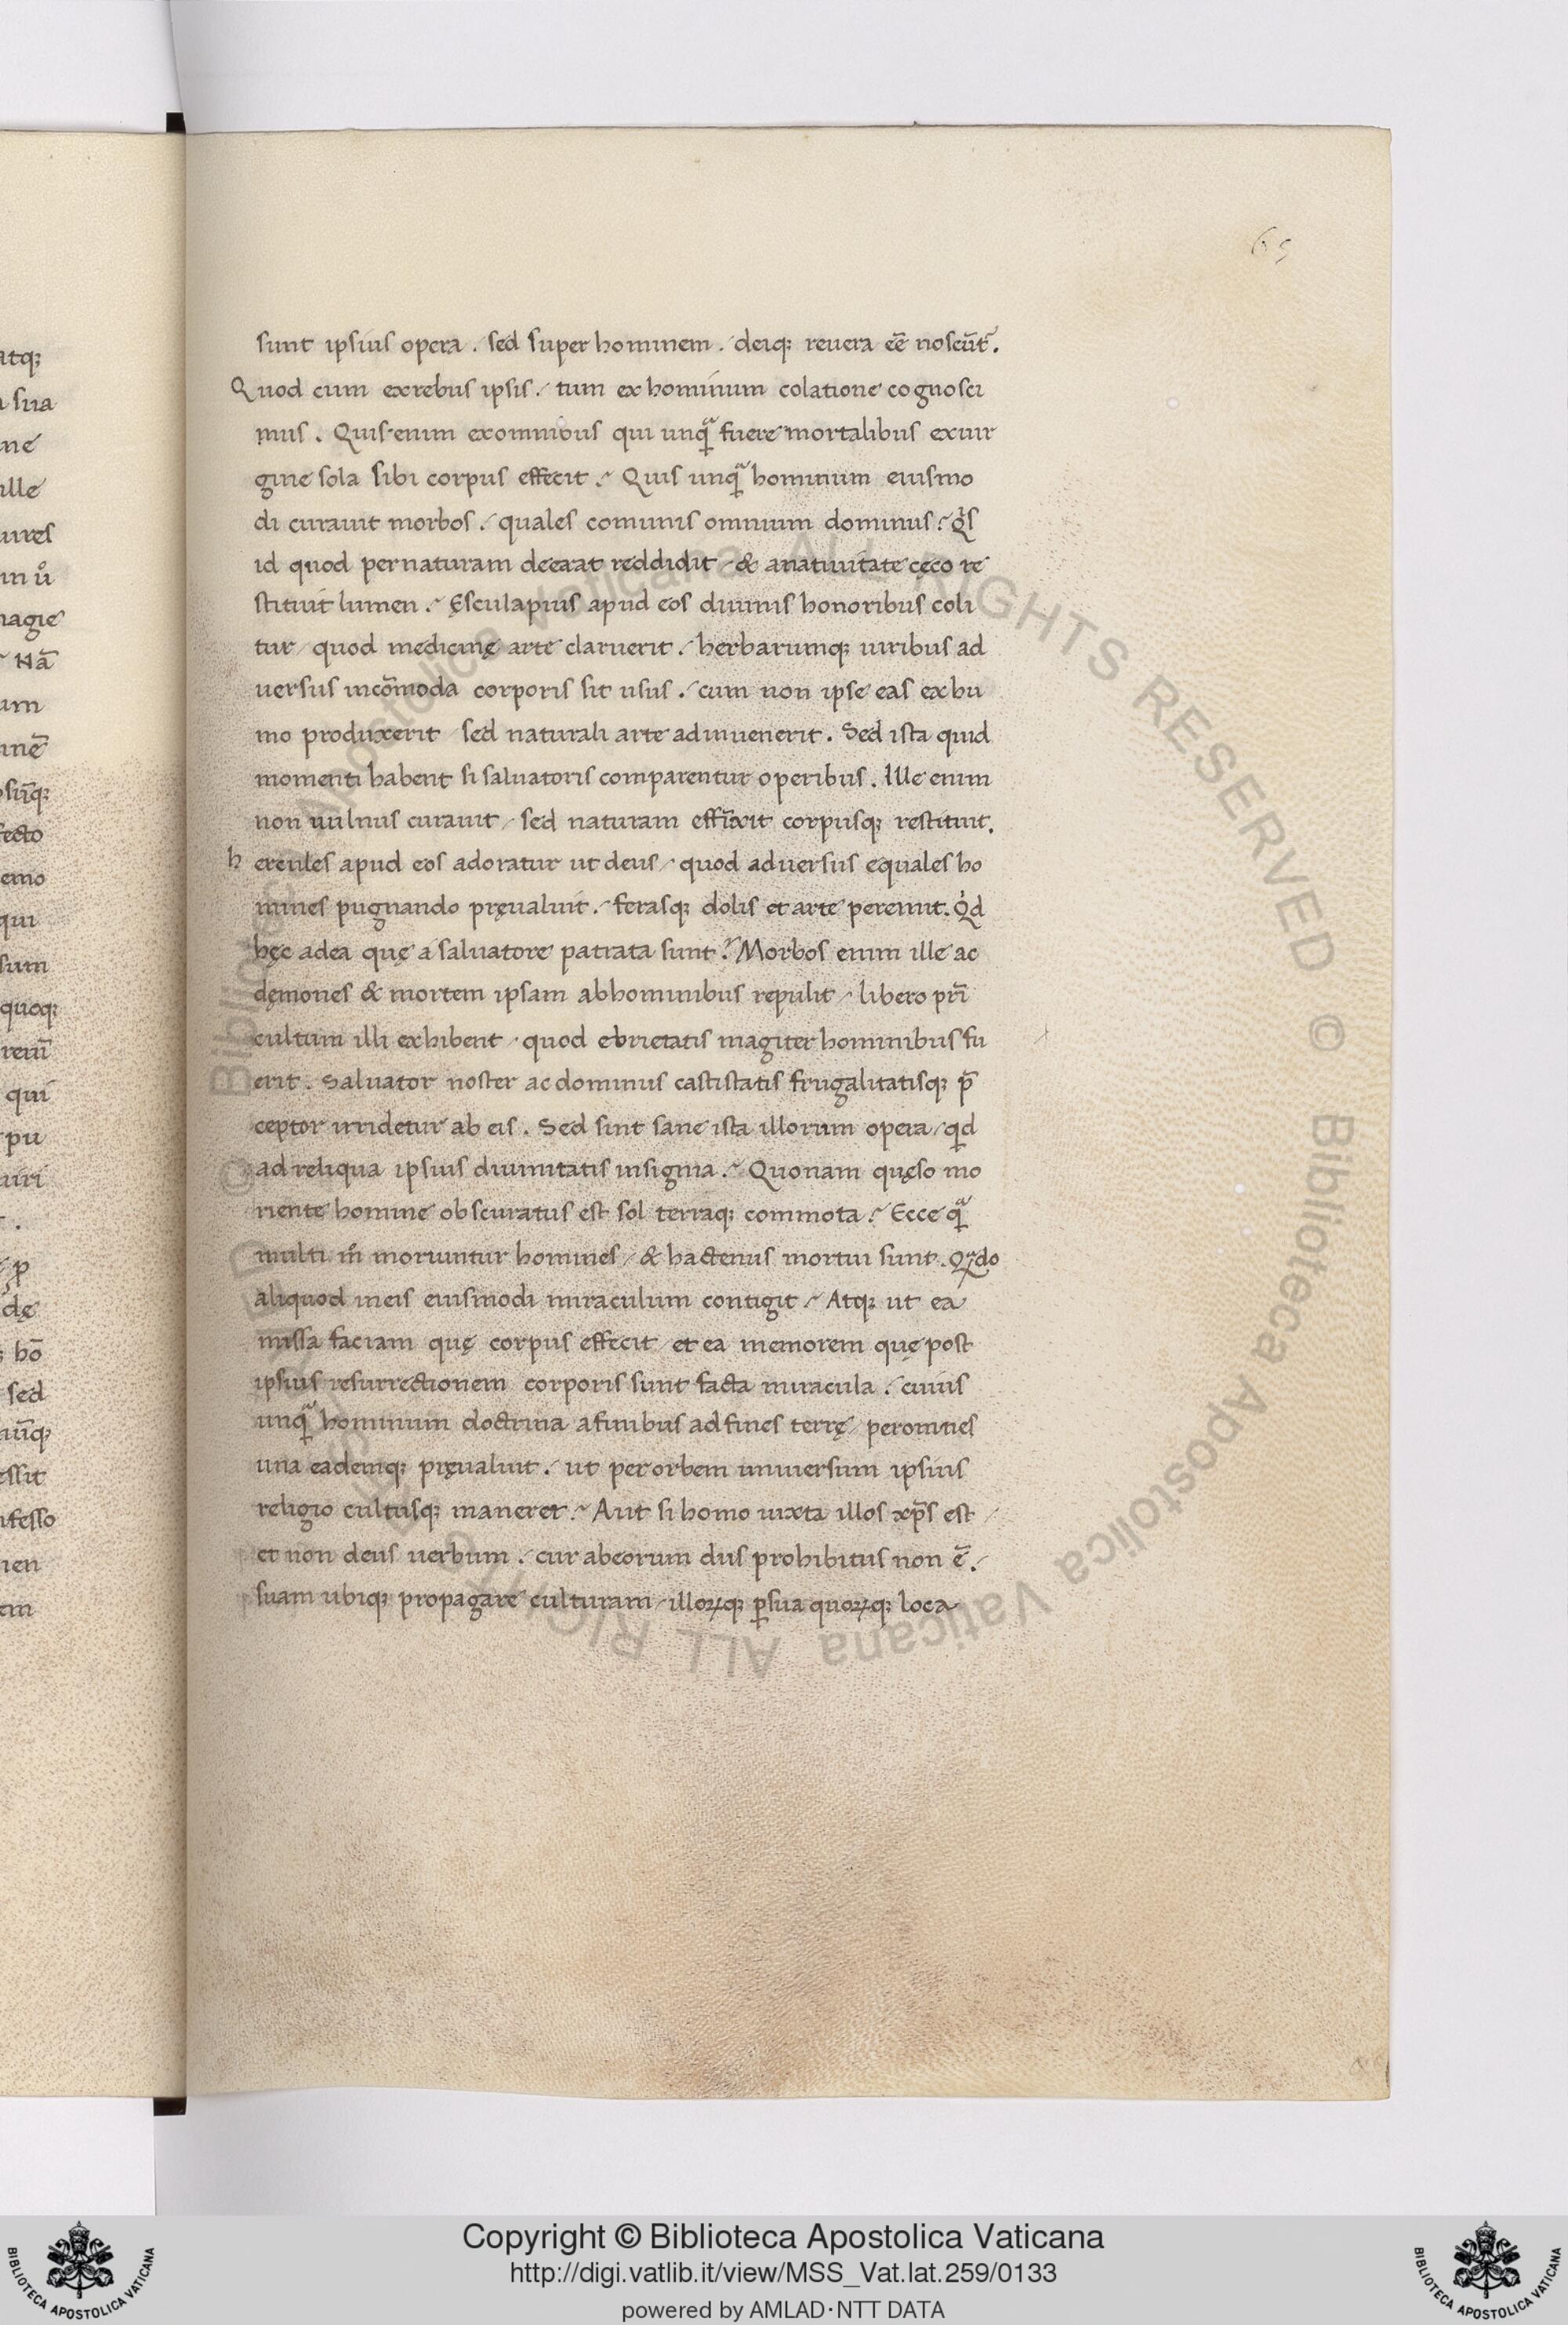 65
sunt ipsius opera . sed super hominem . deiq; reuera eē noscūt̃.
Quod cum ex rebus ipsis / tum ex hominum colatione cognosci
mus . Quis enim ex omnibus qui unq̃ fuere mortalibus ex uir
gine sola sibi corpus effecit ? Quis unq̃ hominum eiusmo
di curauit morbos / quales comunis omnium dominus ? Qͥs
id quod per naturam deerat reddidit / & a natiuitate cęco re
stituit lumen ? Ęsculapius apud eos diuinis honoribus coli
tur / quod medicinę arte claruerit / herbarumq; uiribus ad
uersus incōmoda corporis sit usus / cum non ipse eas ex hu
mo produxerit / sed naturali arte adinuenerit . Sed ista quid
momenti habent si saluatoris comparentur operibus . Ille enim
non uulnus curauit / sed naturam effinxit corpusq; restituit.
hercules apud eos adoratur ut deus / quod aduersus equales ho
mines pugnando pręualuit / ferasq; dolis et arte peremit. Qͥd
hęc ad ea quę a saluatore patrata sunt ? Morbos enim ille ac
dęmones & mortem ipsam ab hominibus repulit / libero pr̃i
cultum illi exhibent / quod ebrietatis magiter hominibus fu
erit . Saluator noster ac dominus castistatis frugalitatisq; p̄
ceptor irridetur ab eis . Sed sint sane ista illorum opera / qͥd
ad reliqua ipsius diuinitatis insignia ? Quonam quęso mo
riente homine obscuratus est sol terraq; commota ? Ecce q̃
multi m̃ moriuntur homines / & hactenus mortui sunt . Qꝛ̄do
aliquod in eis eiusmodi miraculum contigit ? Atq; ut ea
missa faciam quę corpus effecit / et ea memorem quę post
ipsius resurrectionem corporis sunt facta miracula / cuius
unq̃ hominum doctrina a finibus ad fines terrę / per omnes
una eademq; pręualuit / ut per orbem uniuersum ipsius
religio cultusq; maneret ? Aut si homo iuxta illos xp̄s est /
et non deus uerbum / cur ab eorum diis prohibitus non ē /
suam ubiq; propagare culturam / illoꝝq; ꝑ sua quoꝝq; loca
Copyright © Biblioteca Apostolica Vaticana
http://digi.vatlib.it/view/MSS_Vat.lat.259/0133
powered by AMLAD·NTT DATA